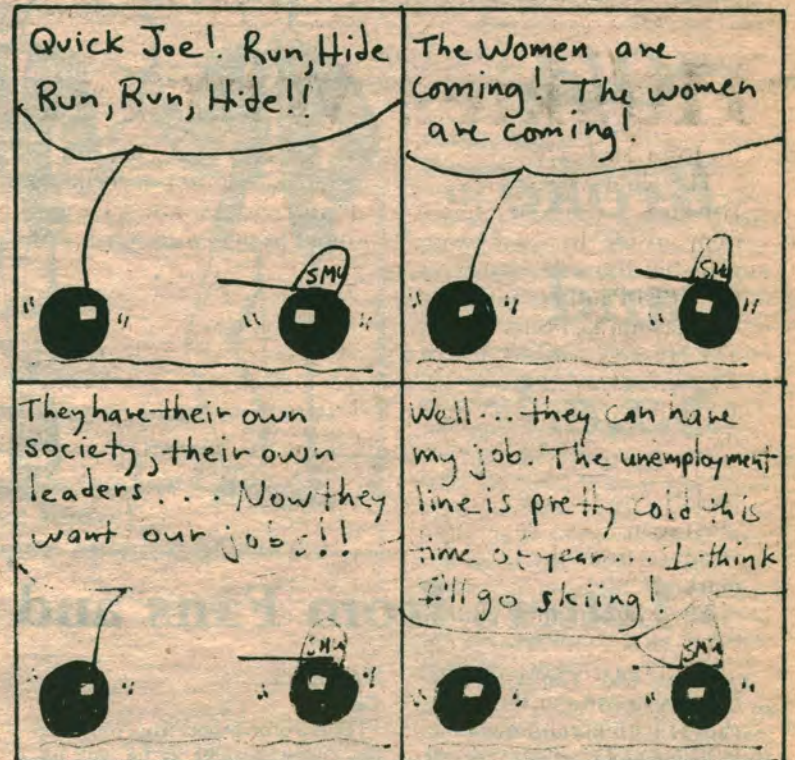 Quick Joe! Run, Hide
Run, Run, Hide!!
SMU
The Women are
Coming! The women
are coming!
SMU
They have their own
society, their own
leaders . . . Now they
want our jobs!!
SMU
Well... they can have
my job. The unemployment
line is pretty cold this
time of year.... I think
I'll go skiing!
SMU